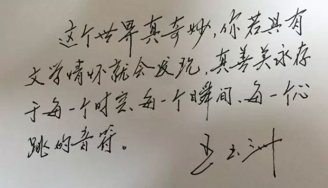 这个世界真奇妙,你若具有
文学情怀就会发现,真善美永存
于每一个时空、每一个瞬间、每一个心
跳的音符。